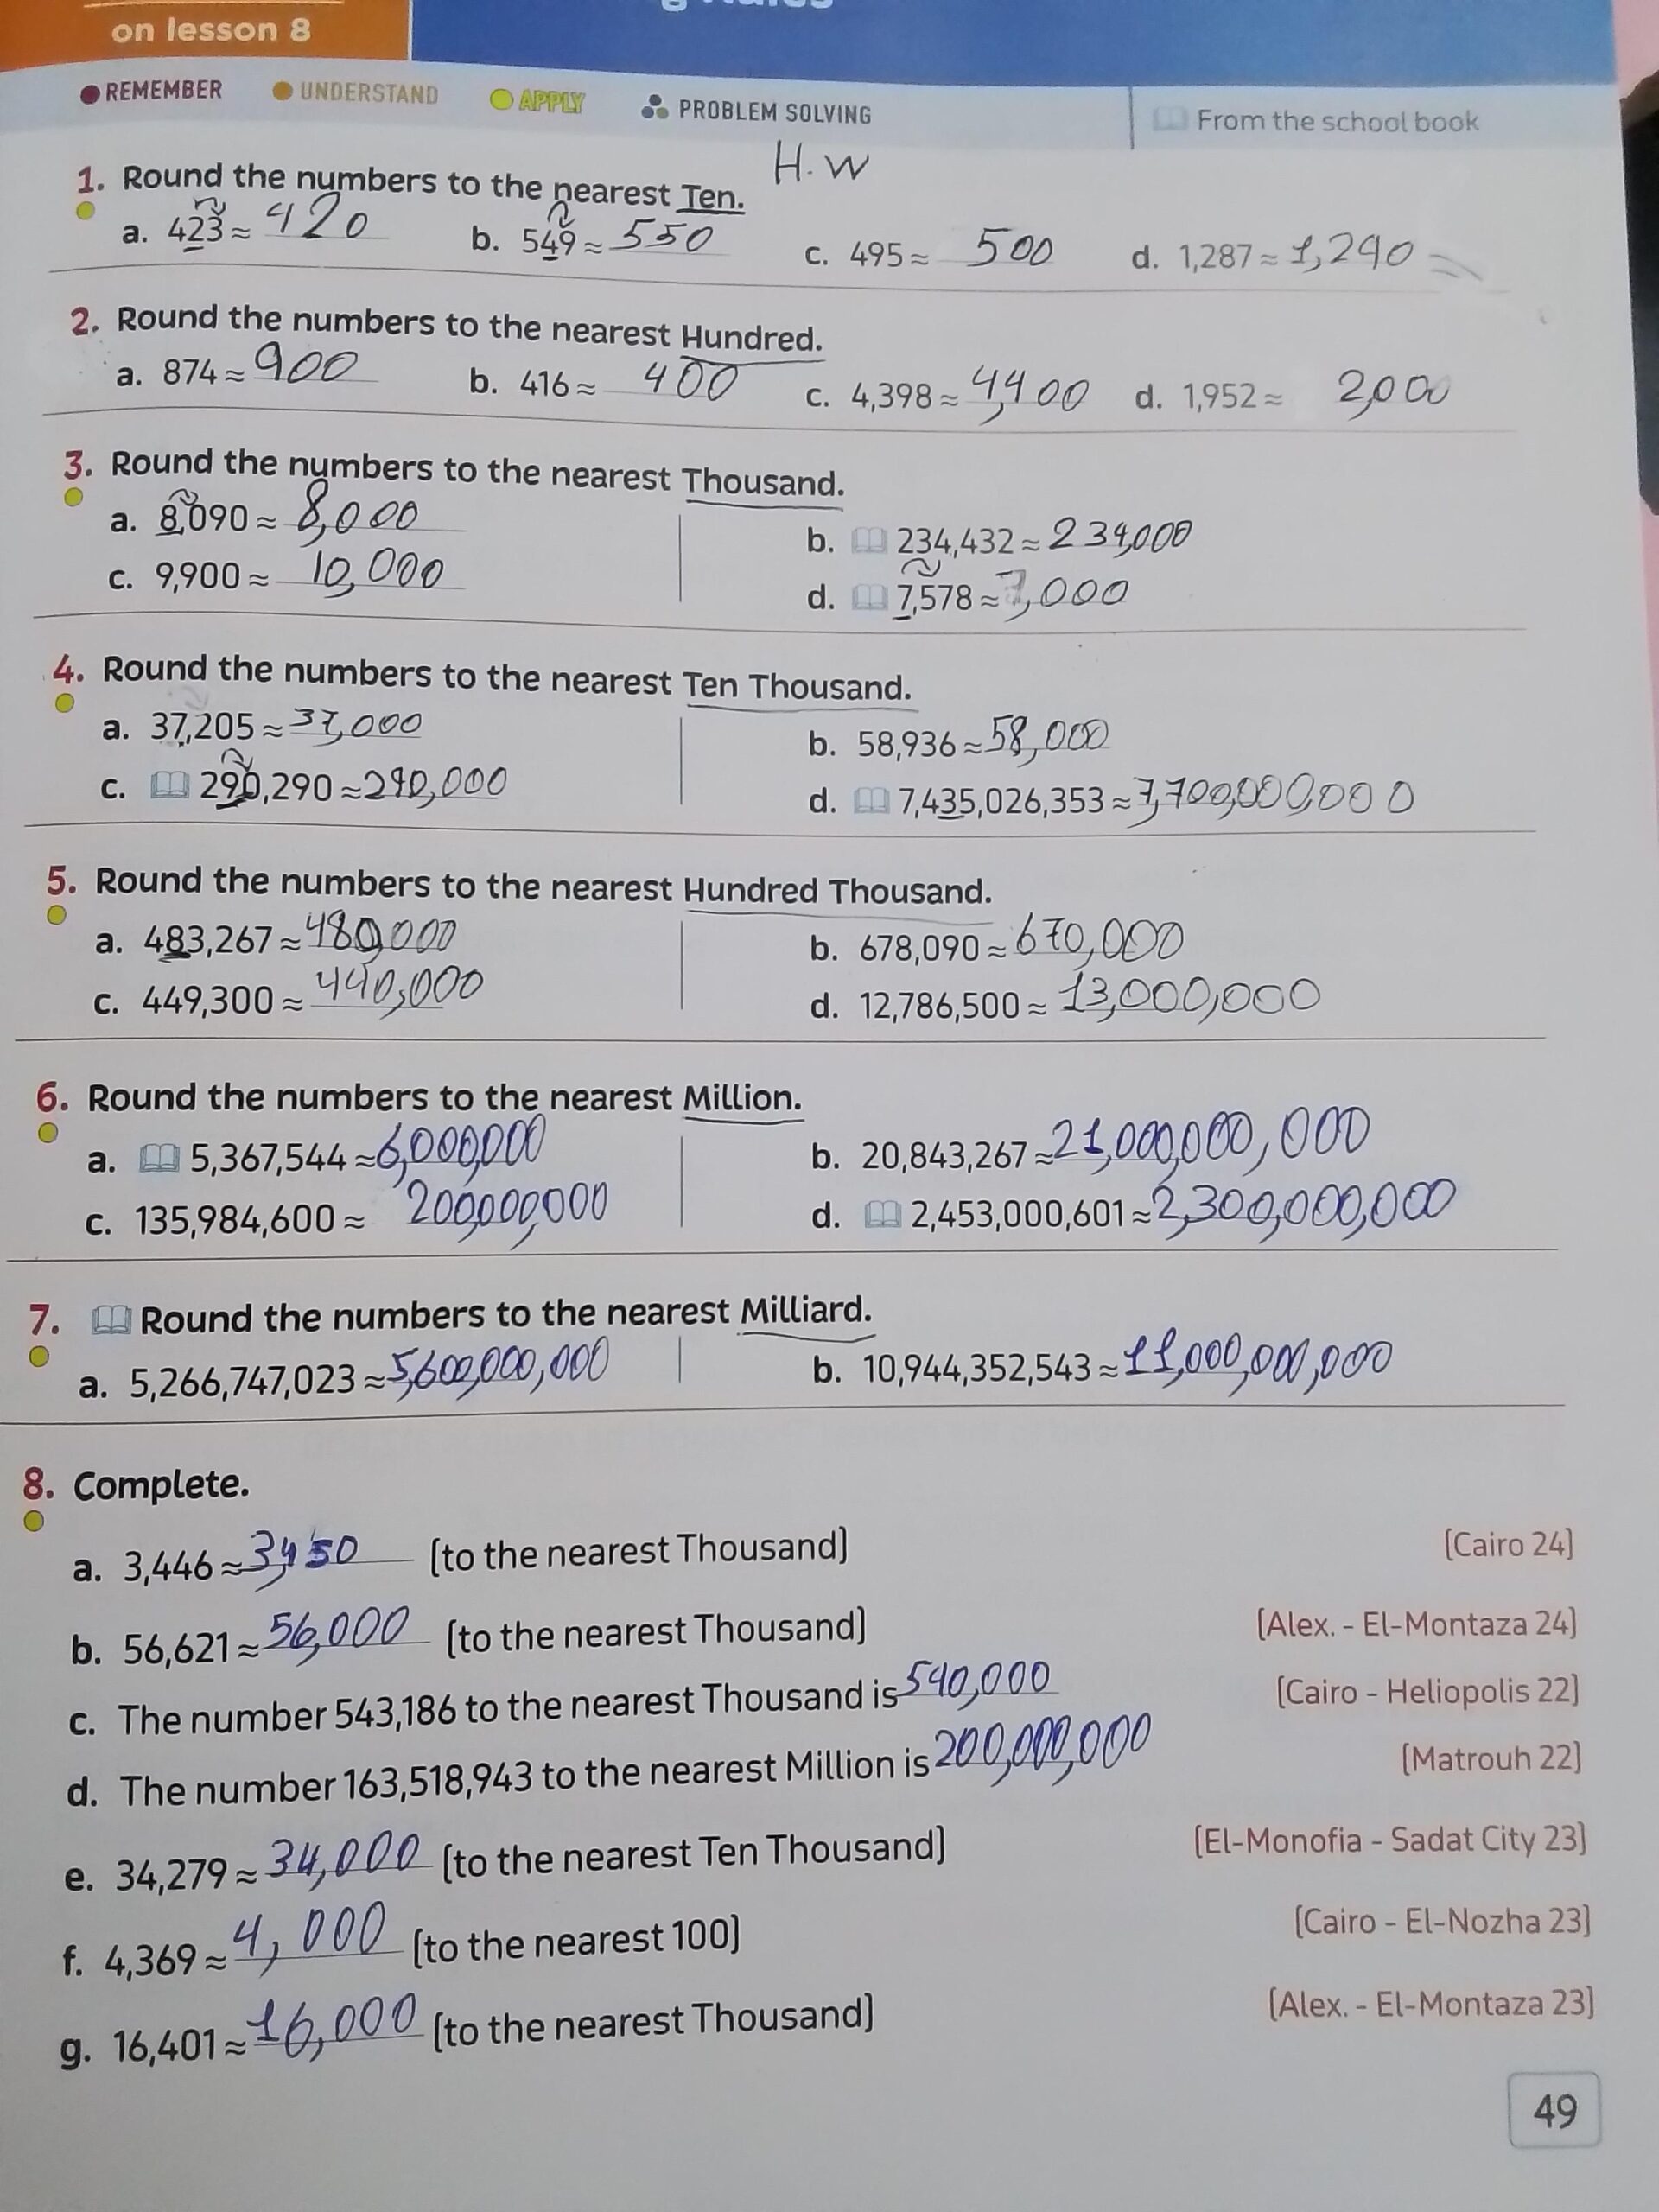 on lesson 8
REMEMBER UNDERSTAND APPLY PROBLEM SOLVING From the school book
H.W
1. Round the numbers to the nearest Ten.
a. 423 ≈ 420 b. 549 ≈ 550 c. 495 ≈ 500 d. 1,287 ≈ 1,290
2. Round the numbers to the nearest Hundred.
a. 874 ≈ 900 b. 416 ≈ 400 c. 4,398 ≈ 4,400 d. 1,952 ≈ 2,000
3. Round the numbers to the nearest Thousand.
a. 8,090 ≈ 8,000 b. 234,432 ≈ 234,000
c. 9,900 ≈ 10,000 d. 7,578 ≈ 7,000
4. Round the numbers to the nearest Ten Thousand.
a. 37,205 ≈ 37,000 b. 58,936 ≈ 58,000
c. 290,290 ≈ 290,000 d. 7,435,026,353 ≈ 7,700,000,000
5. Round the numbers to the nearest Hundred Thousand.
a. 483,267 ≈ 480,000 b. 678,090 ≈ 670,000
c. 449,300 ≈ 440,000 d. 12,786,500 ≈ 13,000,000
6. Round the numbers to the nearest Million.
a. 5,367,544 ≈ 6,000,000 b. 20,843,267 ≈ 21,000,000,000
c. 135,984,600 ≈ 200,000,000 d. 2,453,000,601 ≈ 2,300,000,000
7. Round the numbers to the nearest Milliard.
a. 5,266,747,023 ≈ 5,600,000,000 b. 10,944,352,543 ≈ 11,000,000,000
8. Complete.
a. 3,446 ≈ 3,450 (to the nearest Thousand) (Cairo 24)
b. 56,621 ≈ 56,000 (to the nearest Thousand) (Alex. - El-Montaza 24)
c. The number 543,186 to the nearest Thousand is 540,000 (Cairo - Heliopolis 22)
d. The number 163,518,943 to the nearest Million is 200,000,000 (Matrouh 22)
e. 34,279 ≈ 34,000 (to the nearest Ten Thousand) (El-Monofia - Sadat City 23)
f. 4,369 ≈ 4,000 (to the nearest 100) (Cairo - El-Nozha 23)
g. 16,401 ≈ 16,000 (to the nearest Thousand) (Alex. - El-Montaza 23)
49